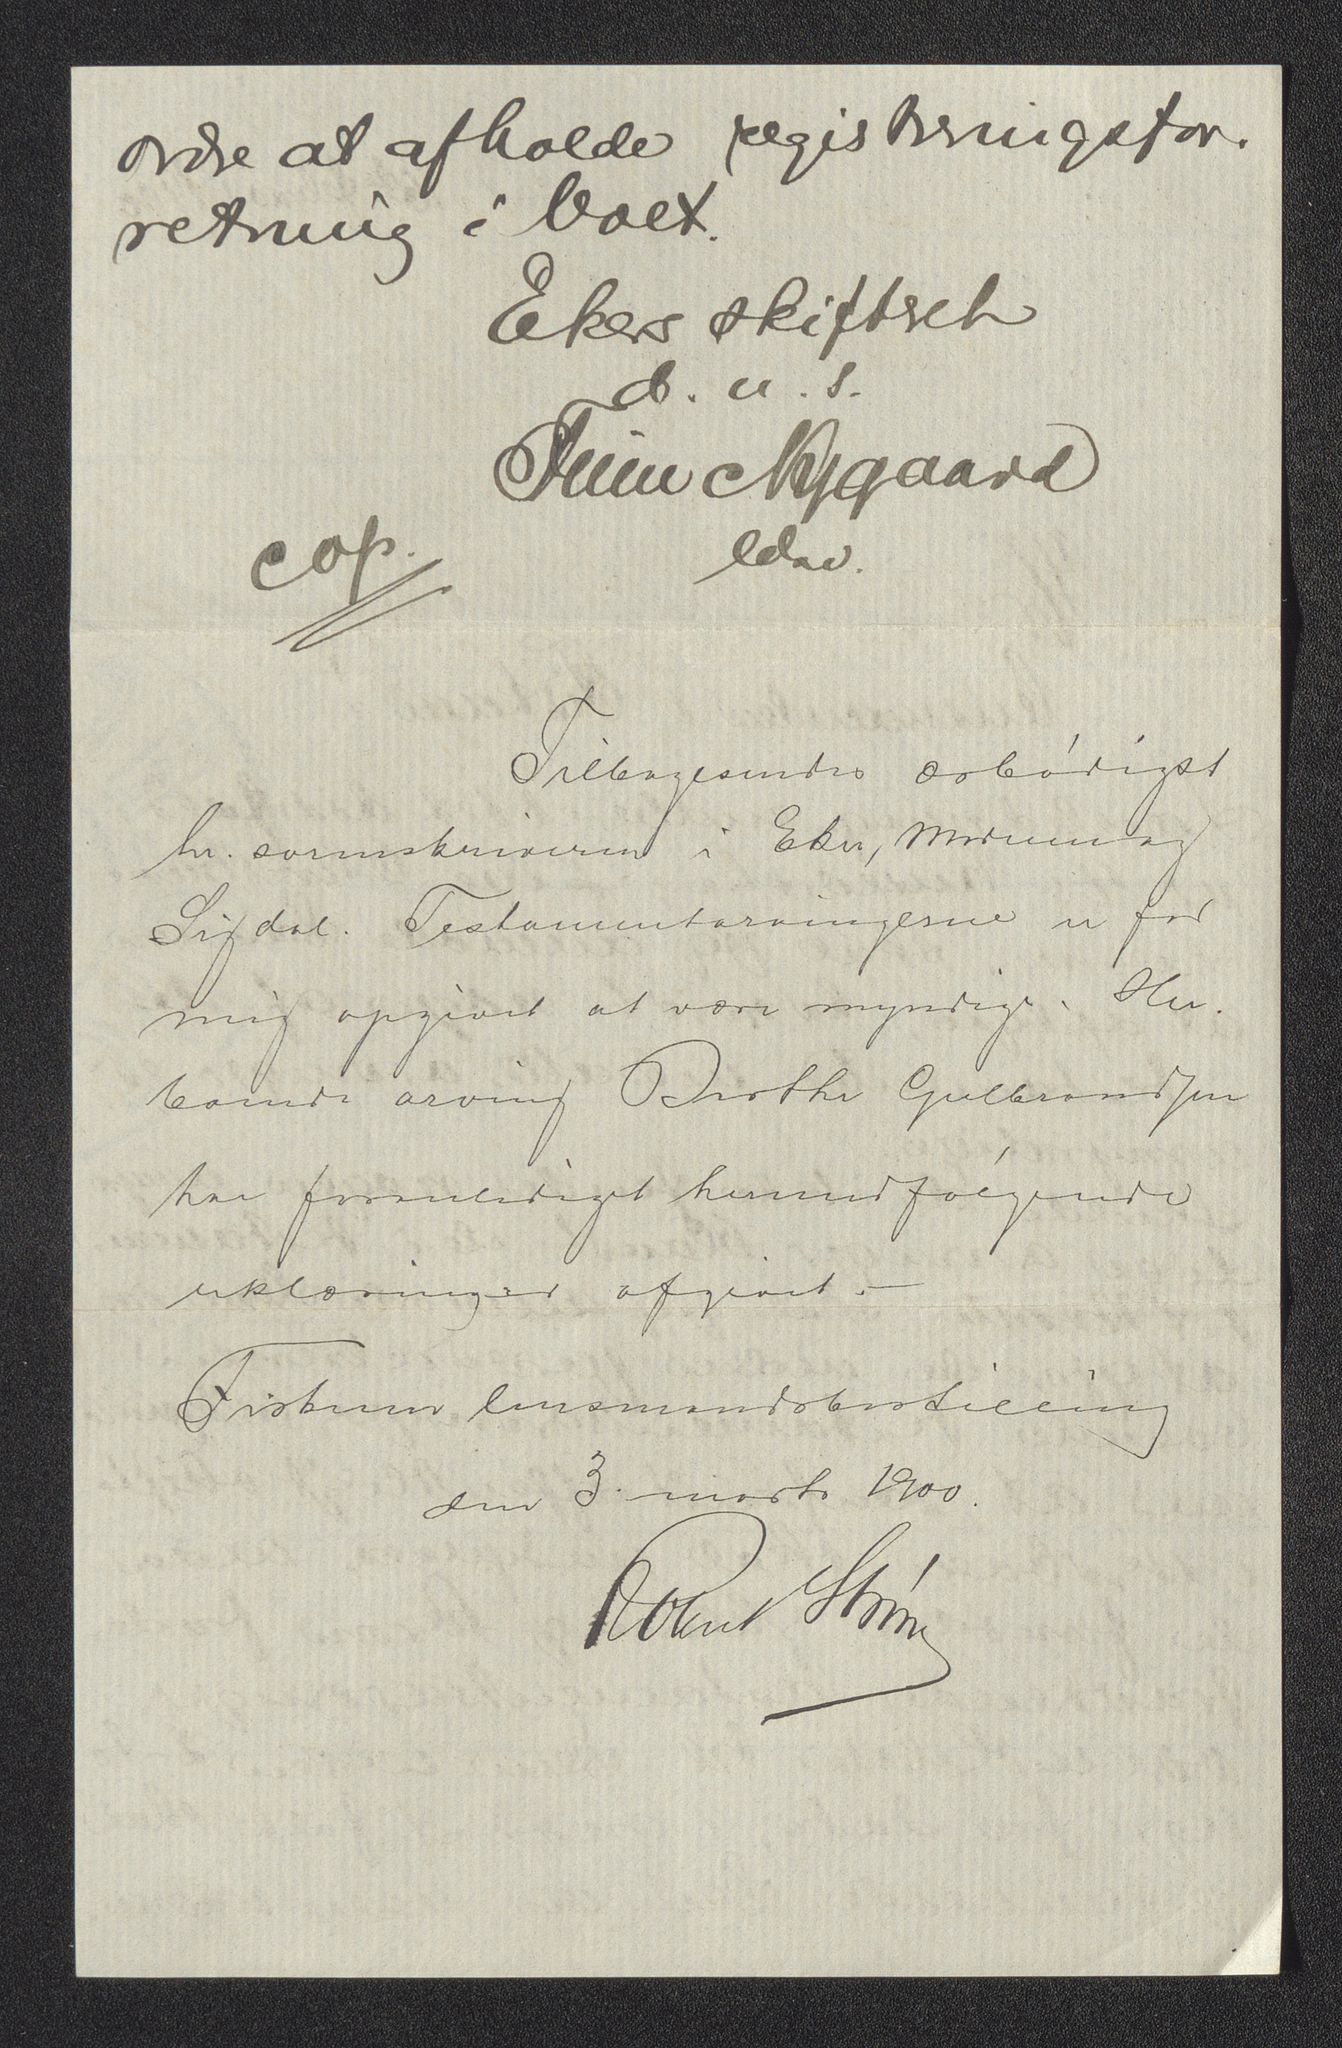 ordre at afholde registreringsfor-
retning i boet.
Ekers skifteret
d. u. s.
Nygaard
cop.
Tilbagesendes ærbødigst
hr. sorenskriveren i Eker, Modum og
Sigdal. Testamentarvingerne er for
mig opgivet at være myndige. Her-
boende arving Berthe Gulbrandsen
har foranlediget hermedfølgende
erklæringer afgivet. —
Fiskum lensmandsbestilling
den 3. marts 1900.
Robert Strøm